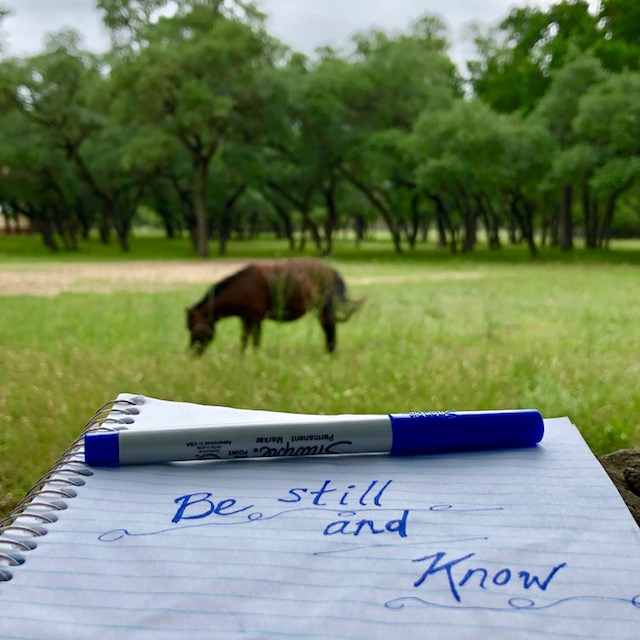 Sharpie
Permanent Marker
Sharpie
Be still
and
Know